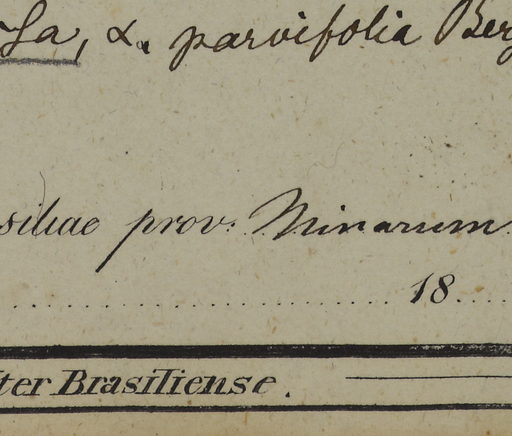 α. parvifolia Berg
siliae prov. Minarum
18
ter Brasiliense.